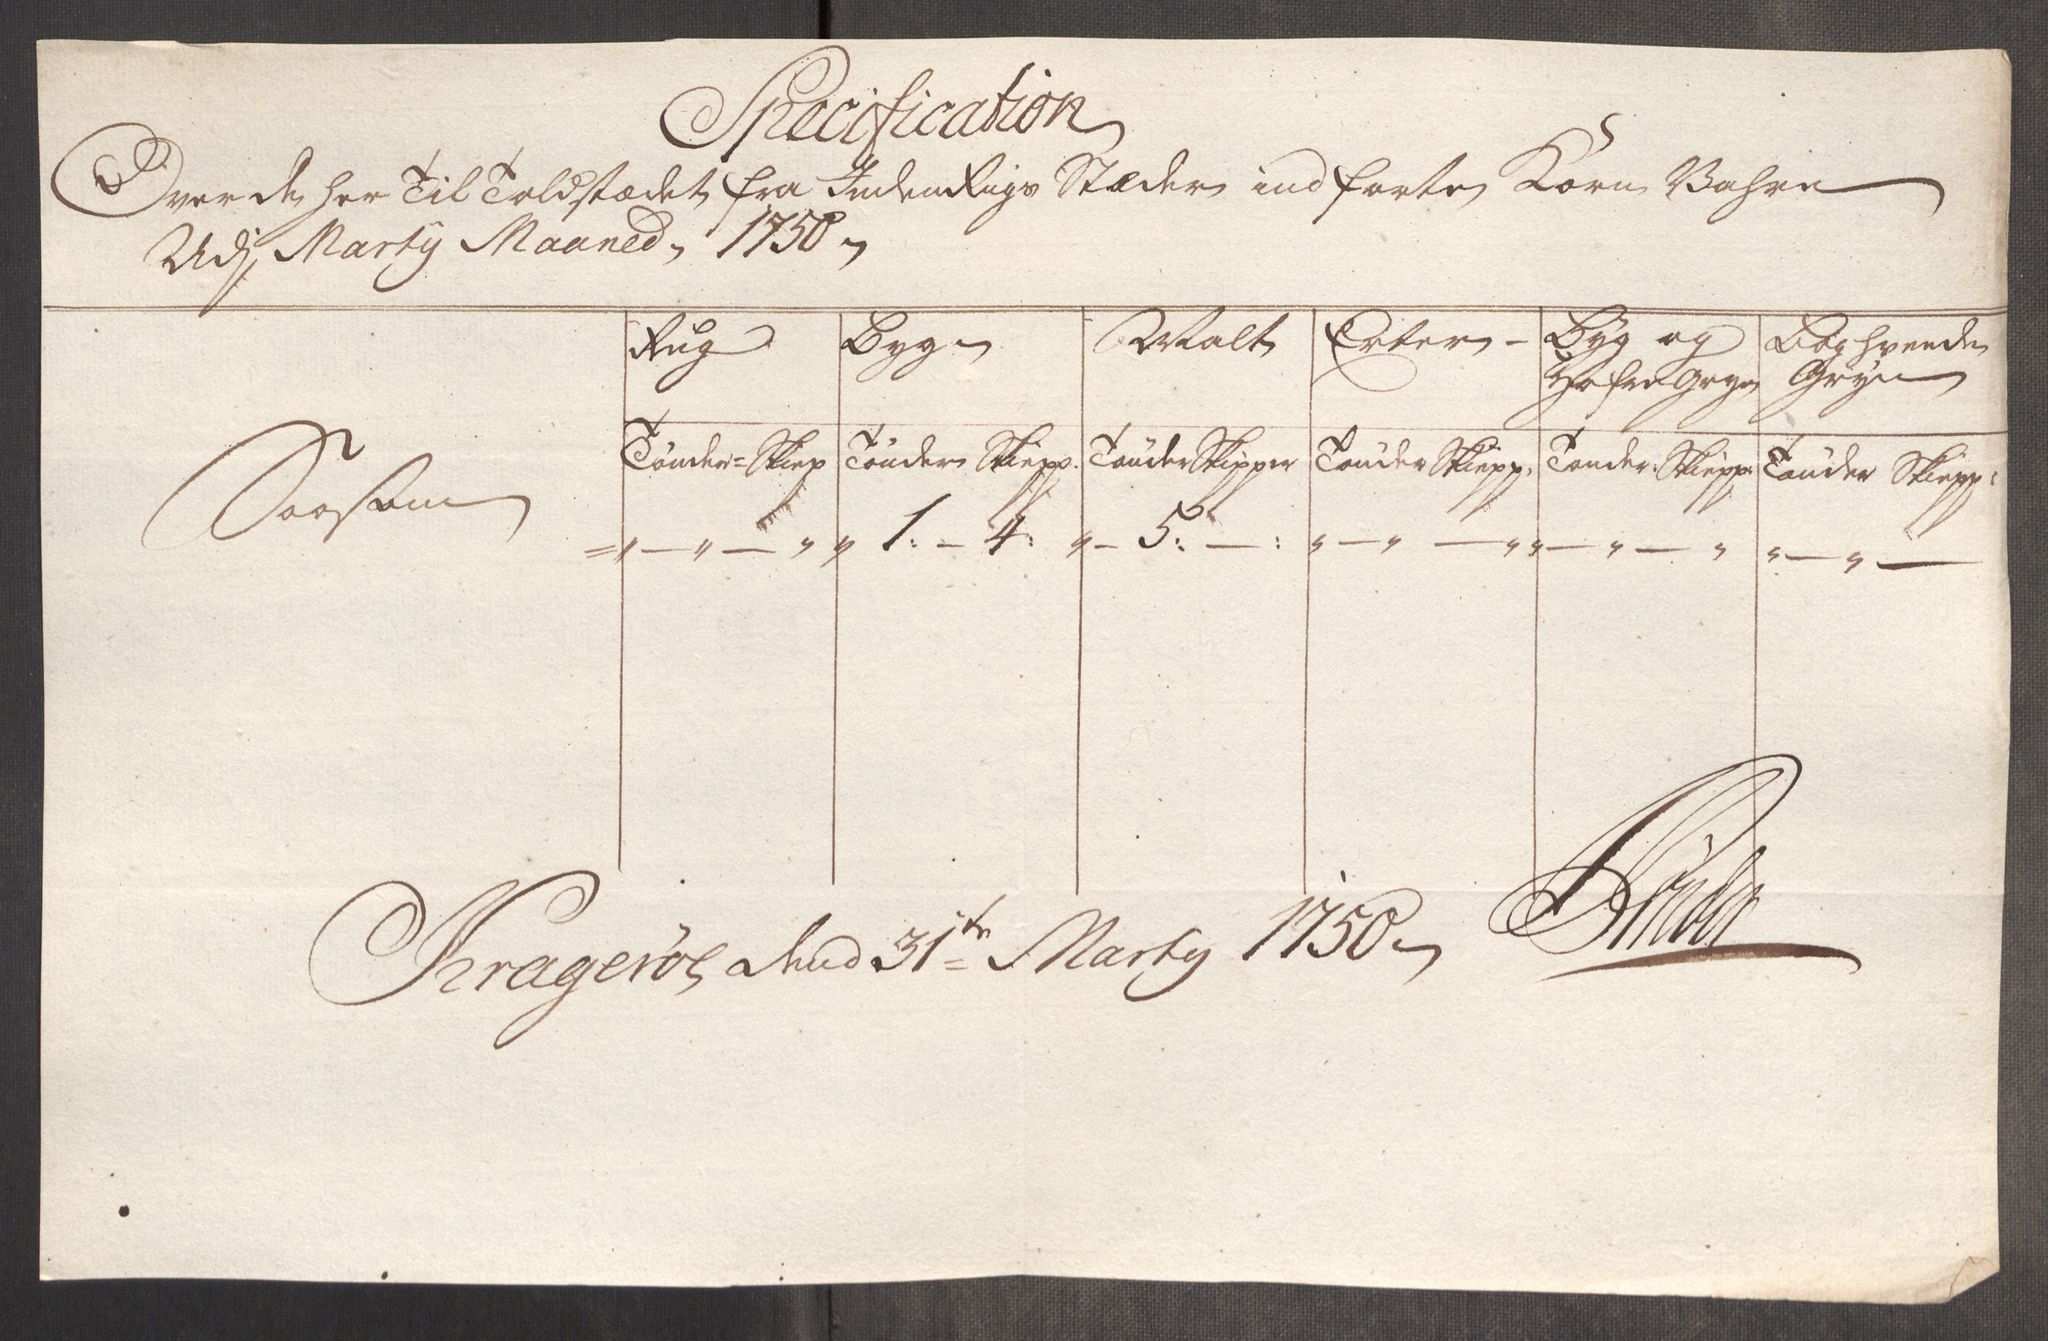 Specification
Over de her Til Toldstædet fra Indenrigs Stæder indførte Korn Vahre
Udj Marty Maaned, 1750
Rug Byg Malt Erter Byg og Boghvede
Hafre Gryn Gryn
Tønder Skiep Tønder Skiepp. Tønder Skipper Tønder Skiepp: Tønder Skiepp: Tønder Skiepp:
Saasom
= " — " — " " 1: — 4: " — 5: — : " — " — " " — " — " " — " —
Kragerøe dend 31te Marty 1750